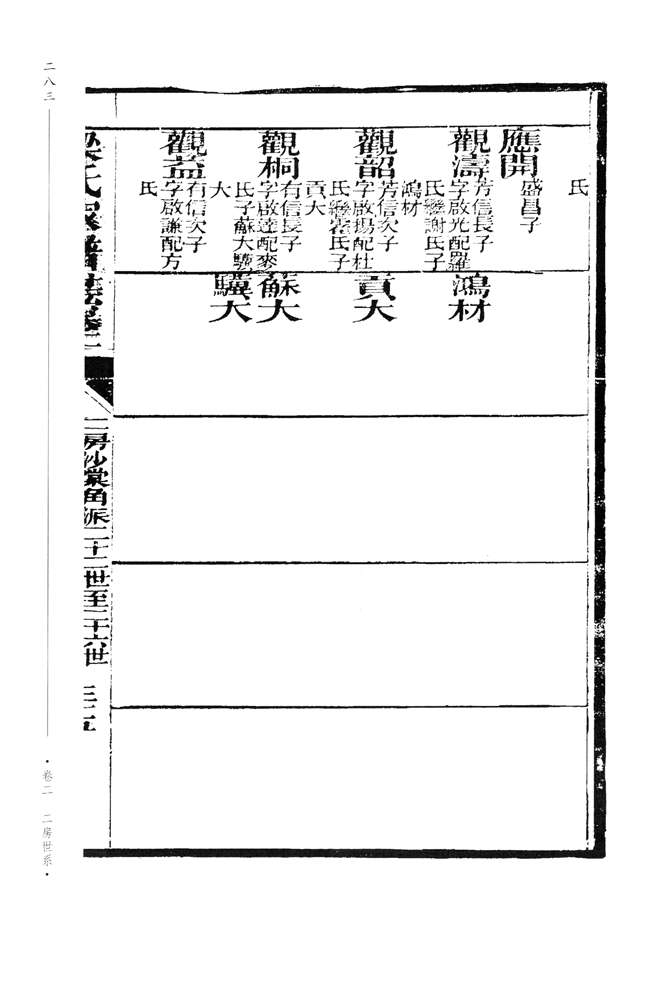 氏
應開
盛昌子
觀濤
芳信長子
字啟光配羅
氏繼謝氏子
鴻材
觀韶
芳信次子
字啟揚配杜
氏繼氏子
貢大
觀桐
有信長子
字啟達配麥
氏子蘇大驥
大
觀益
有信次子
字啟謙配方
氏
鴻材
貢大
蘇大
驥大
二房沙棠角派二十二世至二十六世
二八三
·卷二 二房世系·